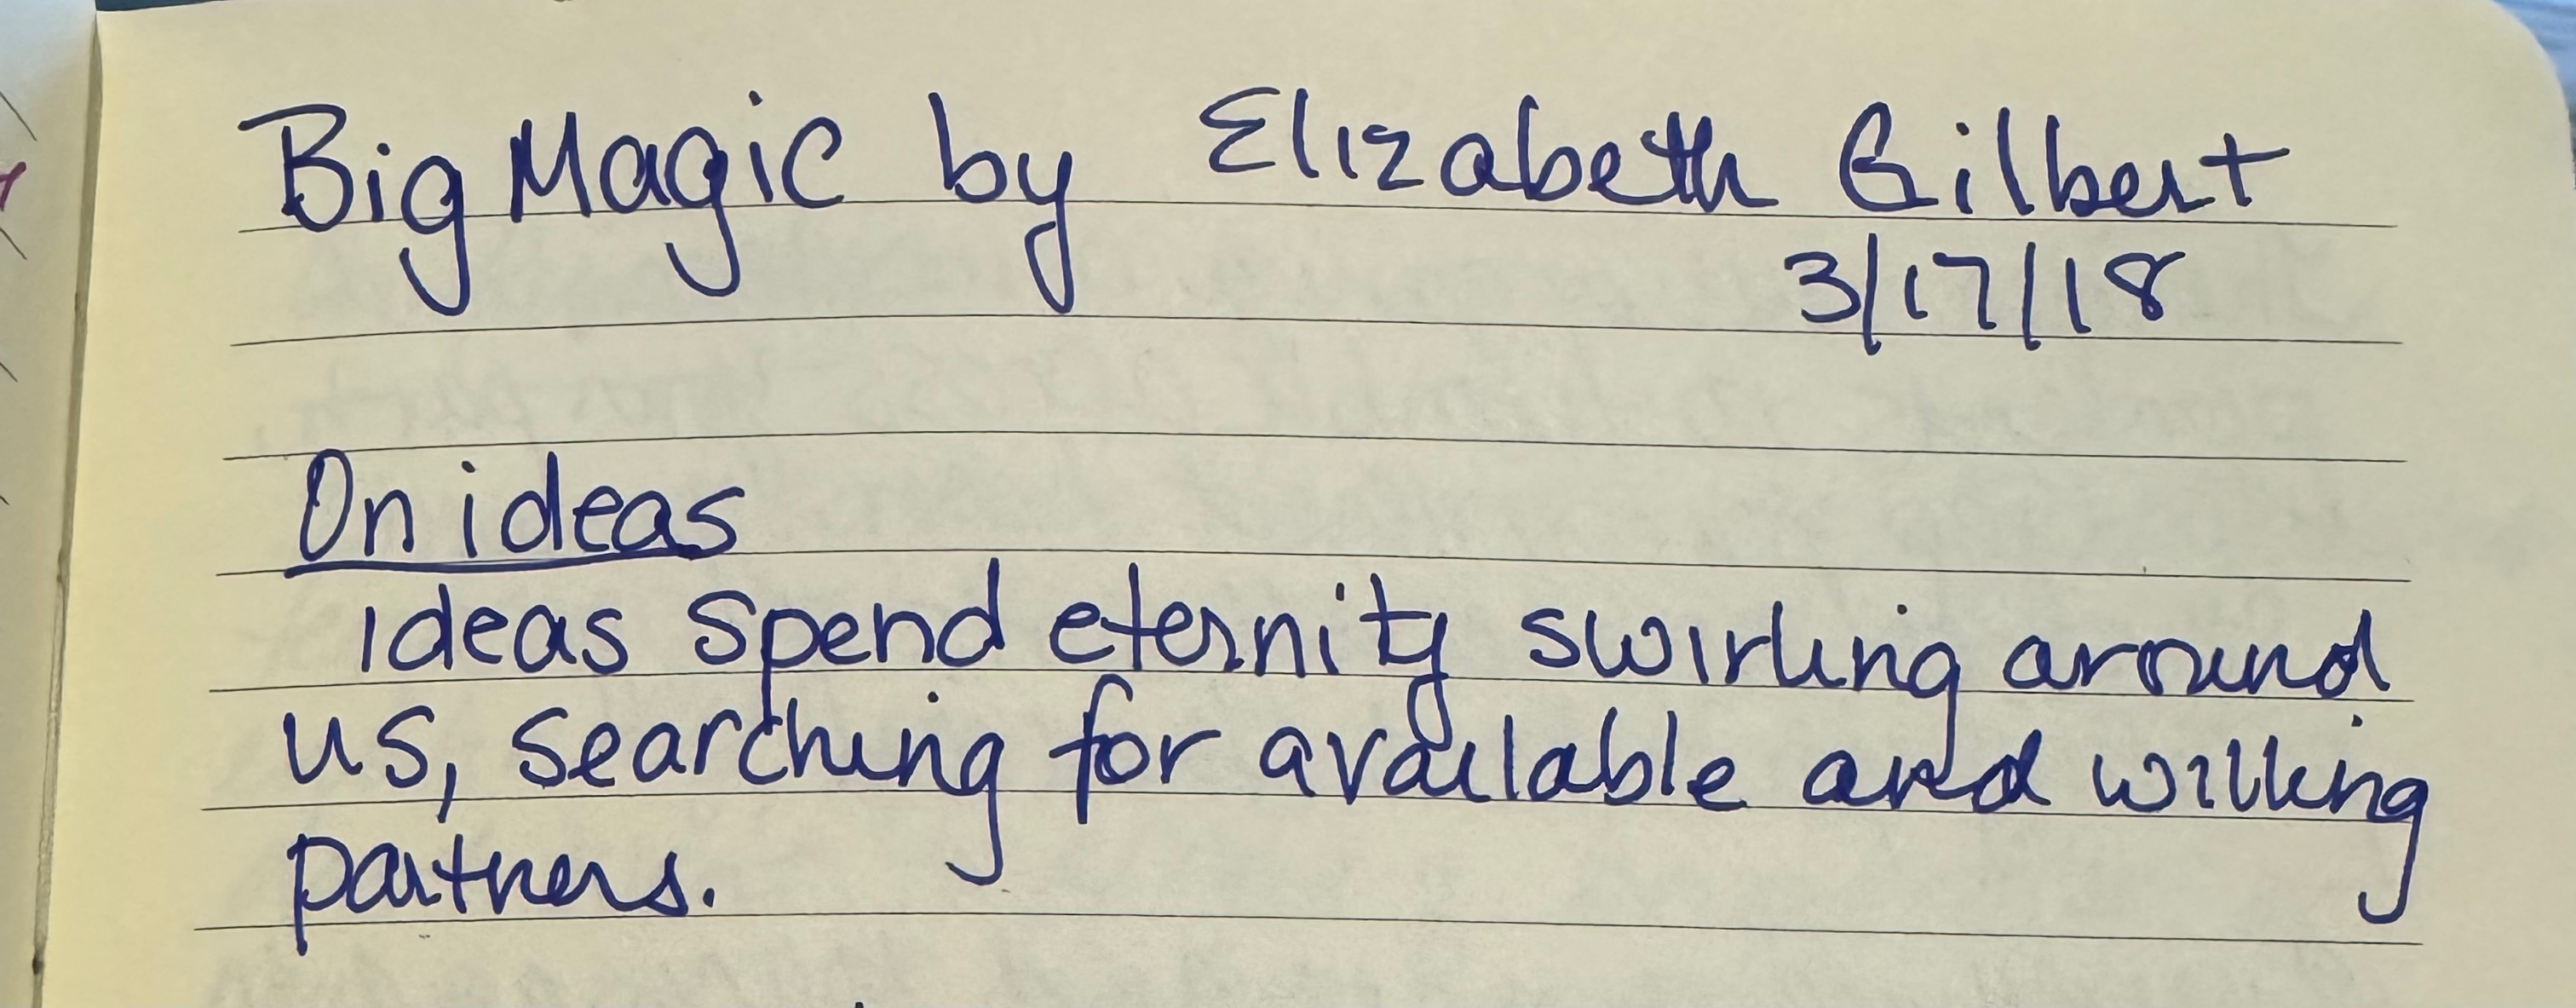 Big Magic by Elizabeth Gilbert
3/17/18
On ideas
ideas spend eternity swirling around
us, searching for available and willing
partners.